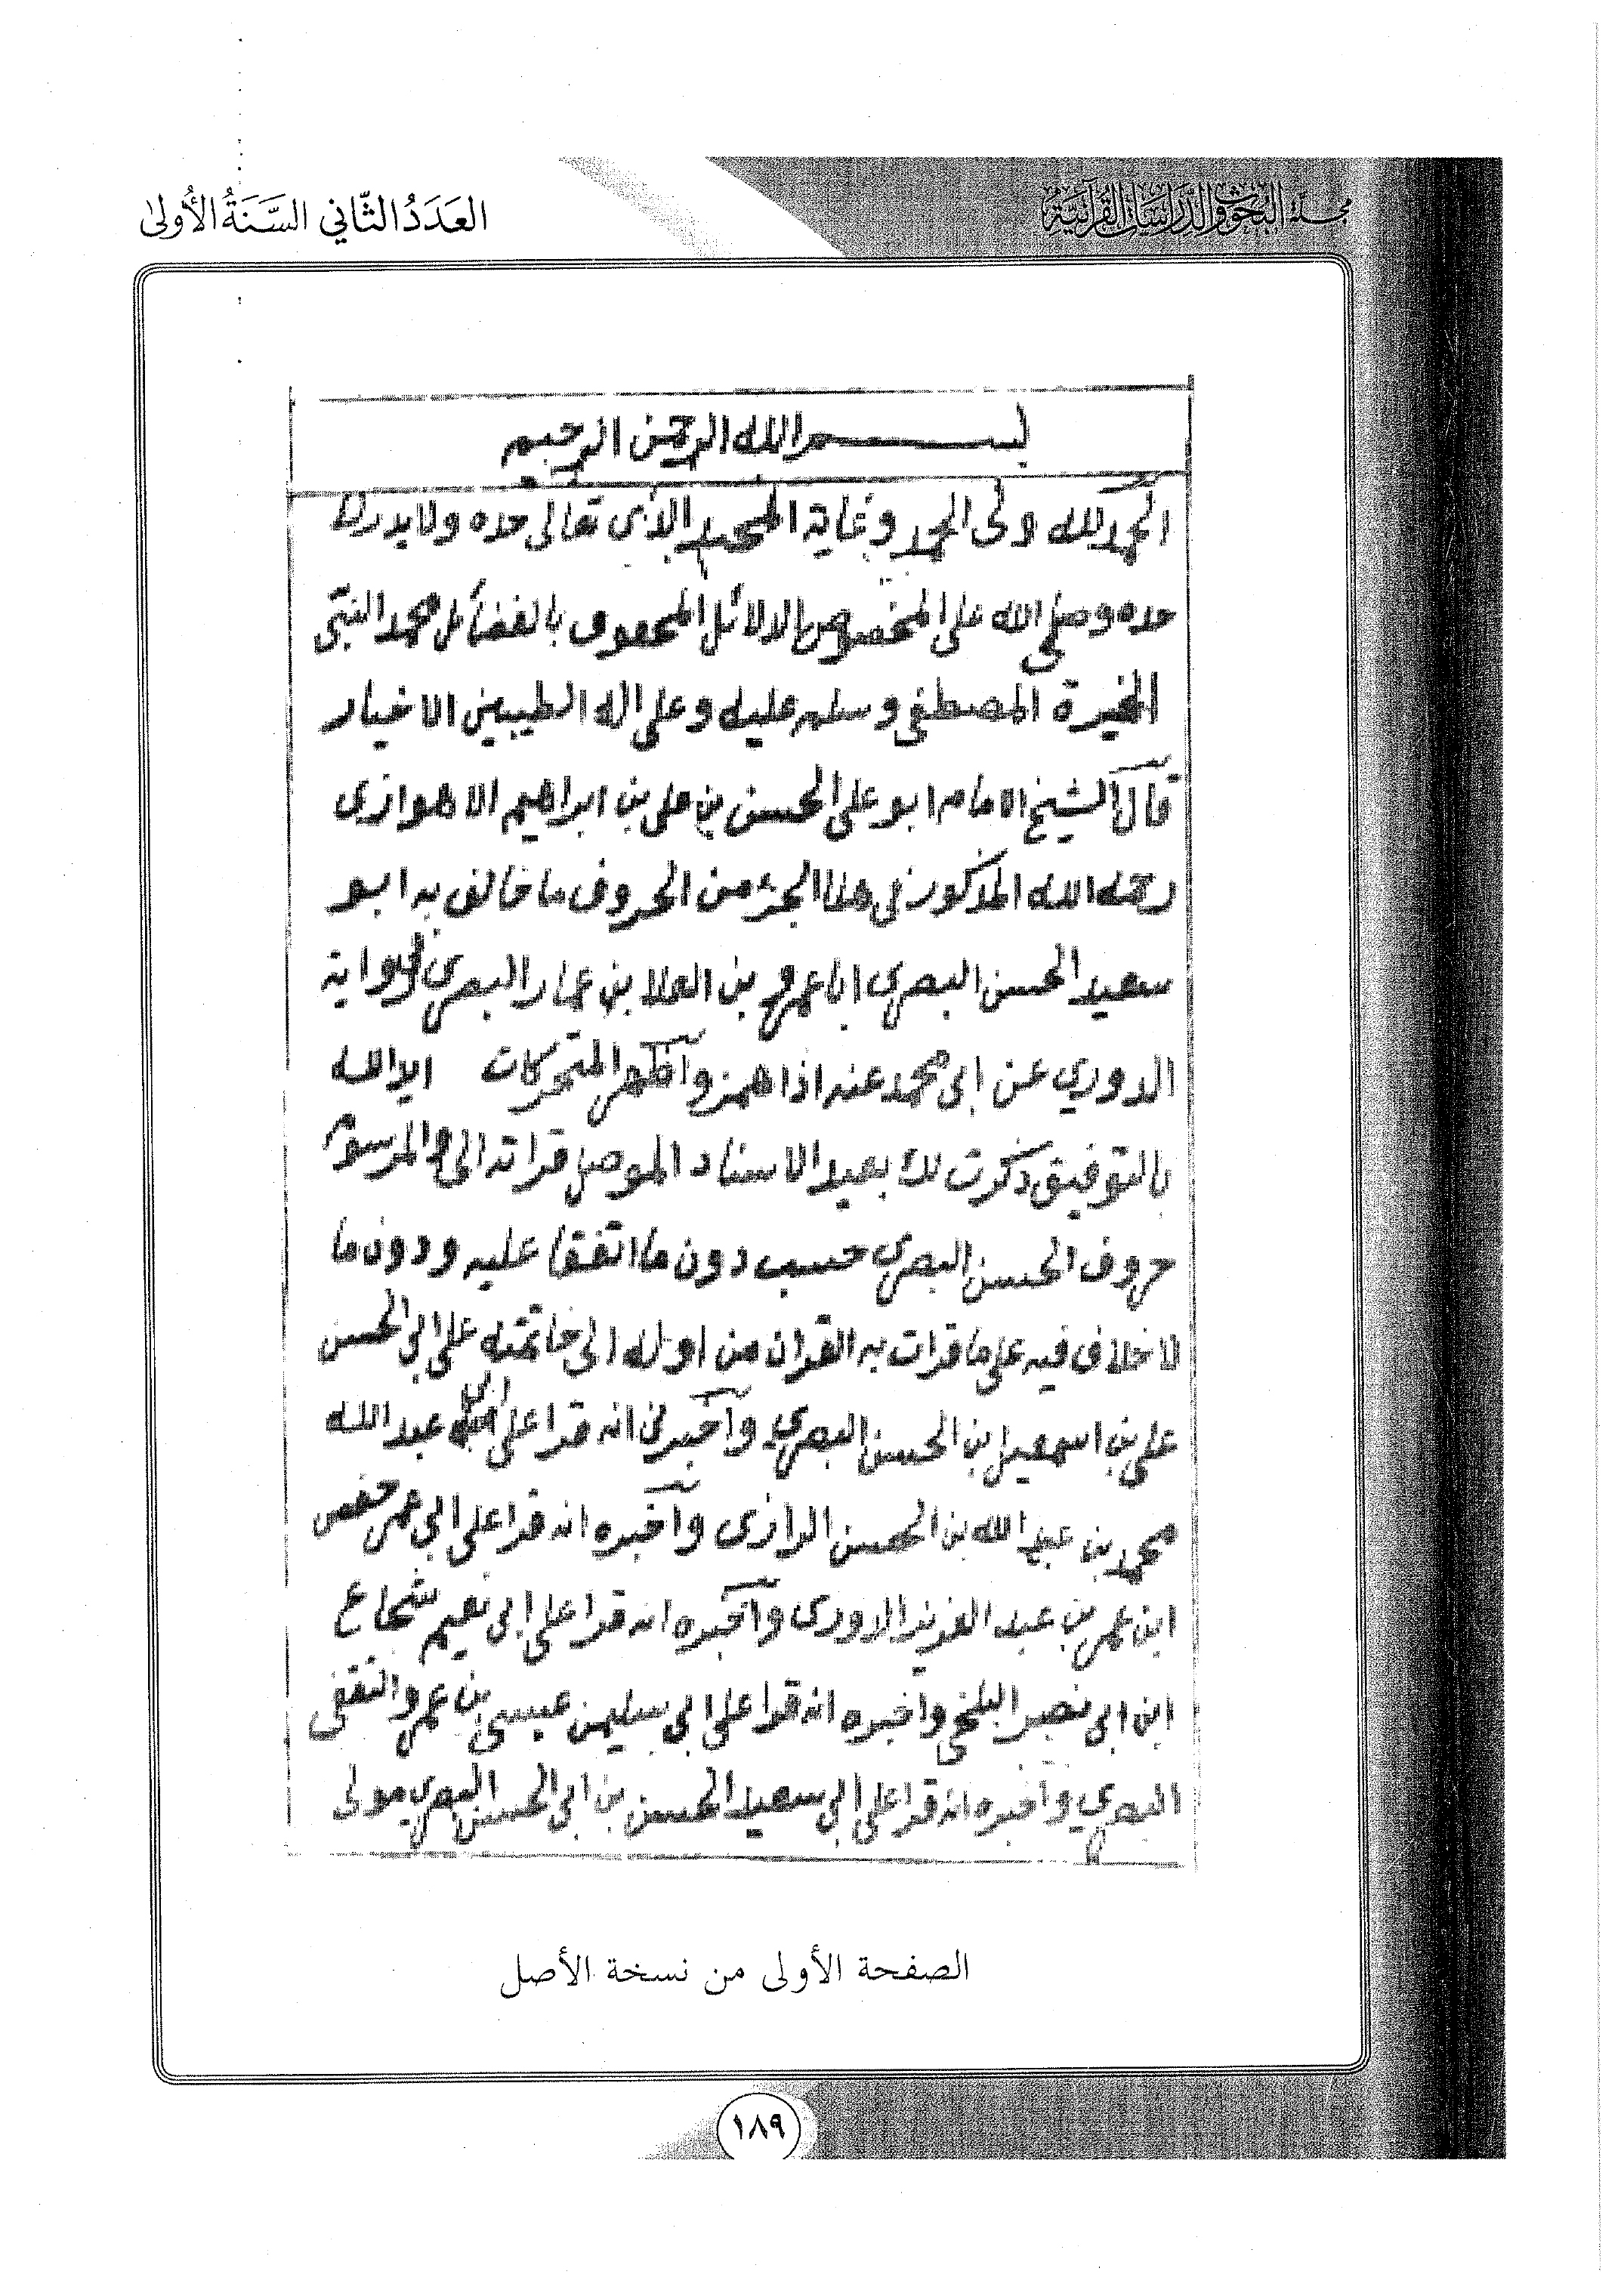 مجلة البحوث والدراسات القرآنية
العَدَدُ الثَّاني السَّنَةُ الأُولى
بسم الله الرحمن الرحيم
الحمد لله ولى الحمد وغاية تعالى حده ولا يدرك
حده وصلى الله على المخصوص الدلائل المحفوف بالفضائل محمد النبى
الخيرة المصطفى وسلم عليه وعلى اله الطيبين الاخيار
قال الشيخ الامام ابو على الحسن بن على بن ابراهيم الاهوازى
رحمه الله المذكور فى هذا الجزء من الحروف ما خالف به ابو
سعيد الحسن البصري ابا عمرو بن العلا بن عمار البصري فى رواية
الدوري عن ابى محمد عنه اذا همز واظهر المتحركات الله
بالتوفيق ذكرت لك بعيد الاسناد الموصل قراته الى المرسوم
حروف الحسن البصري حسب دون ما اتفقا عليه ودون ما
لا خلاف فيه على ما قرات به القران من اوله الى خاتمته على ابى الحسن
على بن اسمعيل بن الحسن البصري واخبرنى انه قرا على ابى عبد الله
محمد بن عبد الله بن الحسن الرازى واخبره انه قرا على ابى عمر حفص
ابن عمر بن عبد العزيز الدورى واخبره انه قرا على ابى نعيم شجاع
ابن ابى نصر البلخى واخبره انه قرا على ابى سليمن عيسى بن عمرو الثقفى
البصري واخبره انه قرا على ابى سعيد الحسن بن ابى الحسن البصري مولى
الصفحة الأولى من نسخة الأصل
١٨٩